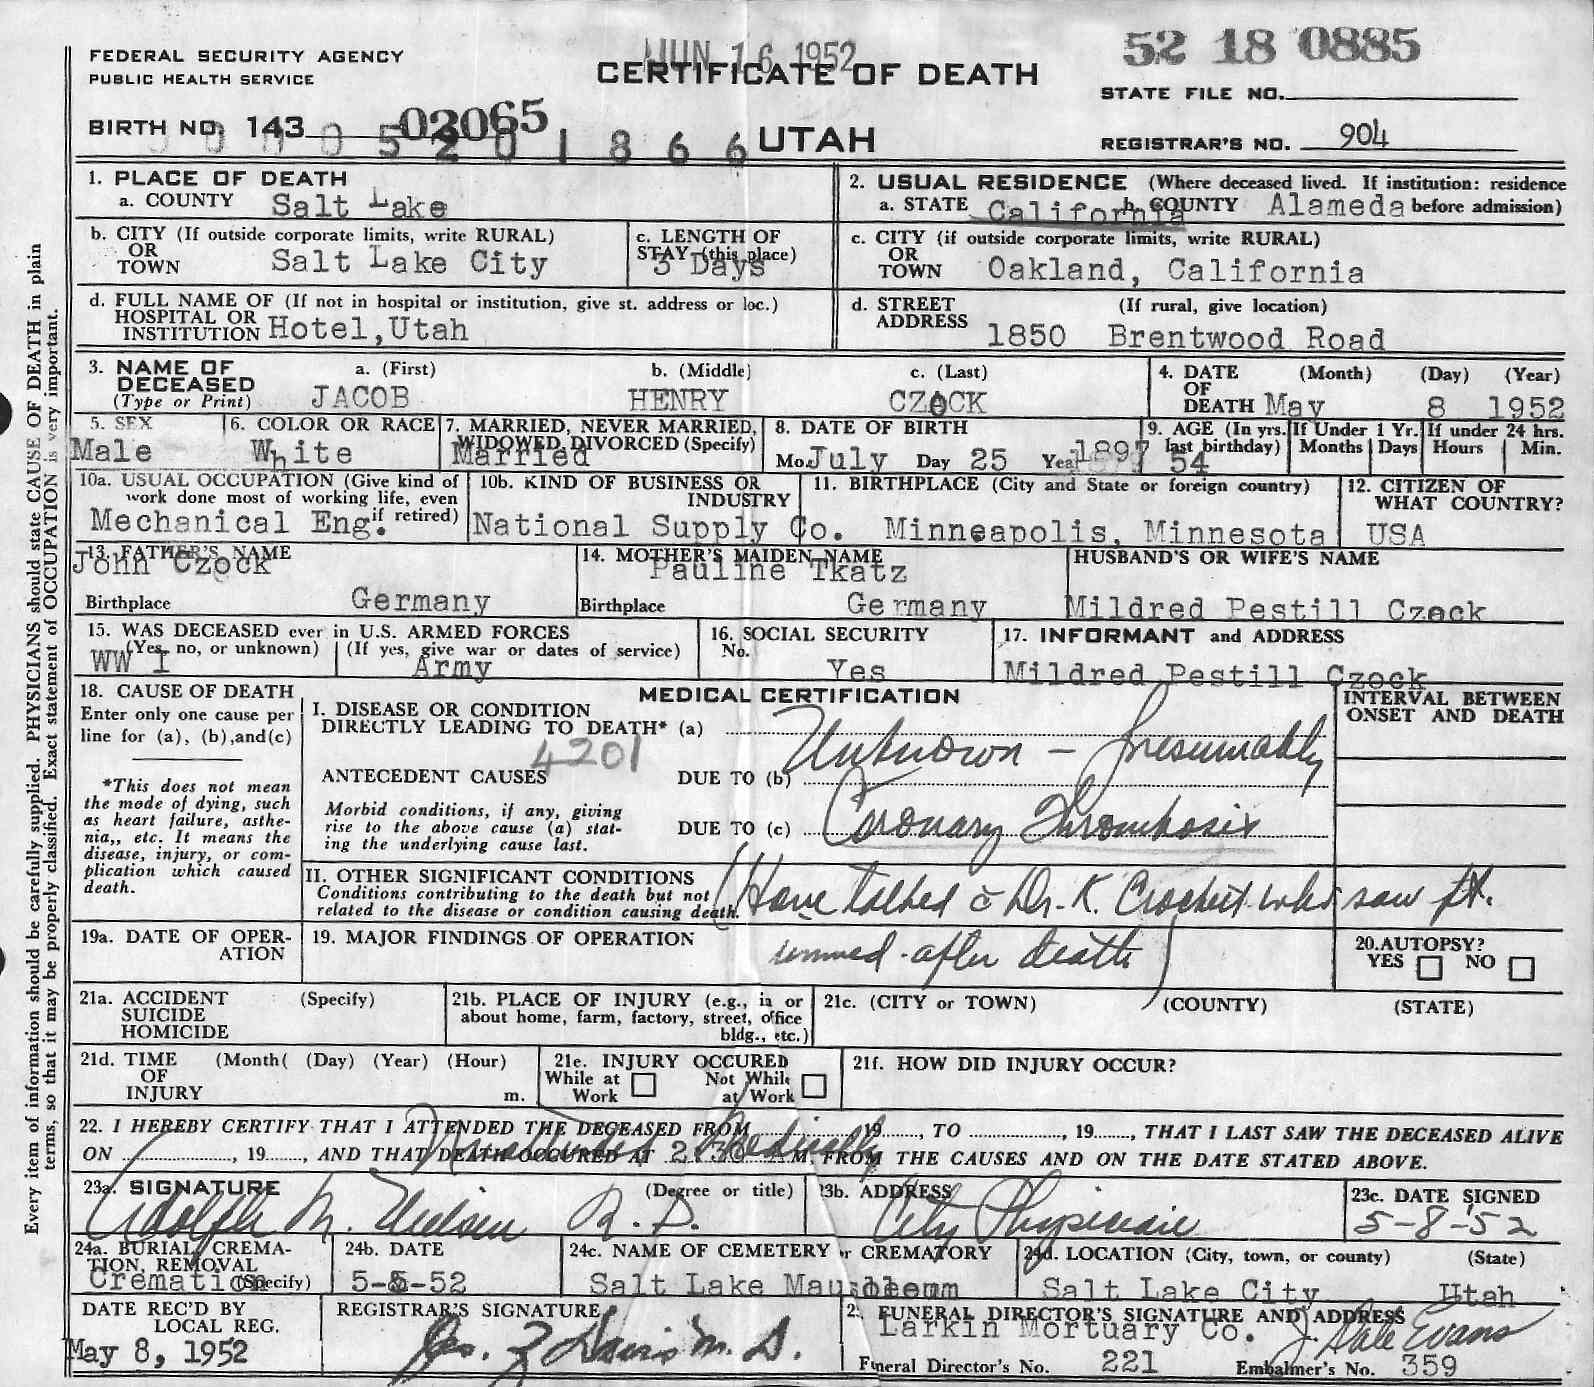 JUN 16 1952
52 18 0885
FEDERAL SECURITY AGENCY
PUBLIC HEALTH SERVICE
CERTIFICATE OF DEATH
STATE FILE NO.
BIRTH NO. 143 02065
5201866 UTAH
REGISTRAR'S NO. 904
Every item of information should be carefully supplied. PHYSICIANS should state CAUSE OF DEATH in plain
terms, so that it may be properly classified. Exact statement of OCCUPATION is very important.
1. PLACE OF DEATH
a. COUNTY Salt Lake
2. USUAL RESIDENCE (Where deceased lived. If institution: residence
a. STATE California b. COUNTY Alameda before admission)
b. CITY (If outside corporate limits, write RURAL)
OR
TOWN Salt Lake City
c. LENGTH OF
STAY (this place)
3 Days
c. CITY (if outside corporate limits, write RURAL)
OR
TOWN Oakland, California
d. FULL NAME OF (If not in hospital or institution, give st. address or loc.)
HOSPITAL OR
INSTITUTION Hotel,Utah
d. STREET (If rural, give location)
ADDRESS 1850 Brentwood Road
3. NAME OF DECEASED
(Type or Print)
a. (First) b. (Middle) c. (Last)
JACOB HENRY CZOCK
4. DATE (Month) (Day) (Year)
OF
DEATH May 8 1952
5. SEX
Male
6. COLOR OR RACE
White
7. MARRIED, NEVER MARRIED,
WIDOWED, DIVORCED (Specify)
Married
8. DATE OF BIRTH
Mo. July Day 25 Year 1897
9. AGE (In yrs. last birthday) 54
If Under 1 Yr. Months Days
If under 24 hrs. Hours Min.
10a. USUAL OCCUPATION (Give kind of
work done most of working life, even
if retired)
Mechanical Eng.
10b. KIND OF BUSINESS OR
INDUSTRY
National Supply Co.
11. BIRTHPLACE (City and State or foreign country)
Minneapolis, Minnesota
12. CITIZEN OF
WHAT COUNTRY?
USA
13. FATHER'S NAME
John Czock
Birthplace Germany
14. MOTHER'S MAIDEN NAME
Pauline Tkatz
Birthplace Germany
HUSBAND'S OR WIFE'S NAME
Mildred Pestill Czock
15. WAS DECEASED ever in U.S. ARMED FORCES
(Yes, no, or unknown) (If yes, give war or dates of service)
WW I Army
16. SOCIAL SECURITY
No.
Yes
17. INFORMANT and ADDRESS
Mildred Pestill Czock
18. CAUSE OF DEATH
Enter only one cause per
line for (a), (b),and(c)
*This does not mean
the mode of dying, such
as heart failure, asthe-
nia,, etc. It means the
disease, injury, or com-
plication which caused
death.
MEDICAL CERTIFICATION
I. DISEASE OR CONDITION
DIRECTLY LEADING TO DEATH* (a)
4201
Unknown - Presumably
ANTECEDENT CAUSES DUE TO (b)
Morbid conditions, if any, giving
rise to the above cause (a) stat-
ing the underlying cause last.
DUE TO (c) Coronary Thrombosis
INTERVAL BETWEEN
ONSET AND DEATH
II. OTHER SIGNIFICANT CONDITIONS
Conditions contributing to the death but not
related to the disease or condition causing death.
(Have talked c Dr. K. Crockett who saw pt.
immed. after death)
19a. DATE OF OPER-
ATION
19. MAJOR FINDINGS OF OPERATION
20. AUTOPSY?
YES NO
21a. ACCIDENT (Specify)
SUICIDE
HOMICIDE
21b. PLACE OF INJURY (e.g., in or
about home, farm, factory, street, office
bldg., etc.)
21c. (CITY or TOWN) (COUNTY) (STATE)
21d. TIME (Month( (Day) (Year) (Hour)
OF
INJURY m.
21e. INJURY OCCURED
While at Work Not While at Work
21f. HOW DID INJURY OCCUR?
22. I HEREBY CERTIFY THAT I ATTENDED THE DECEASED FROM 19, TO , 19, THAT I LAST SAW THE DECEASED ALIVE
Unattended Medically
ON , 19, AND THAT DEATH OCCURED AT 2:30 A.M. FROM THE CAUSES AND ON THE DATE STATED ABOVE.
23a. SIGNATURE (Degree or title)
Adolph M. Nielsen M.D.
23b. ADDRESS
City Physician
23c. DATE SIGNED
5-8-52
24a. BURIAL, CREMA-
TION, REMOVAL
(Specify)
Cremation
24b. DATE
5-8-52
24c. NAME OF CEMETERY or CREMATORY
Salt Lake Mausoleum
24d. LOCATION (City, town, or county) (State)
Salt Lake City Utah
DATE REC'D BY
LOCAL REG.
May 8, 1952
REGISTRAR'S SIGNATURE
2 FUNERAL DIRECTOR'S SIGNATURE AND ADDRESS
Larkin Mortuary Co. J. Dale Evans
Funeral Director's No. 221 Embalmer's No. 359